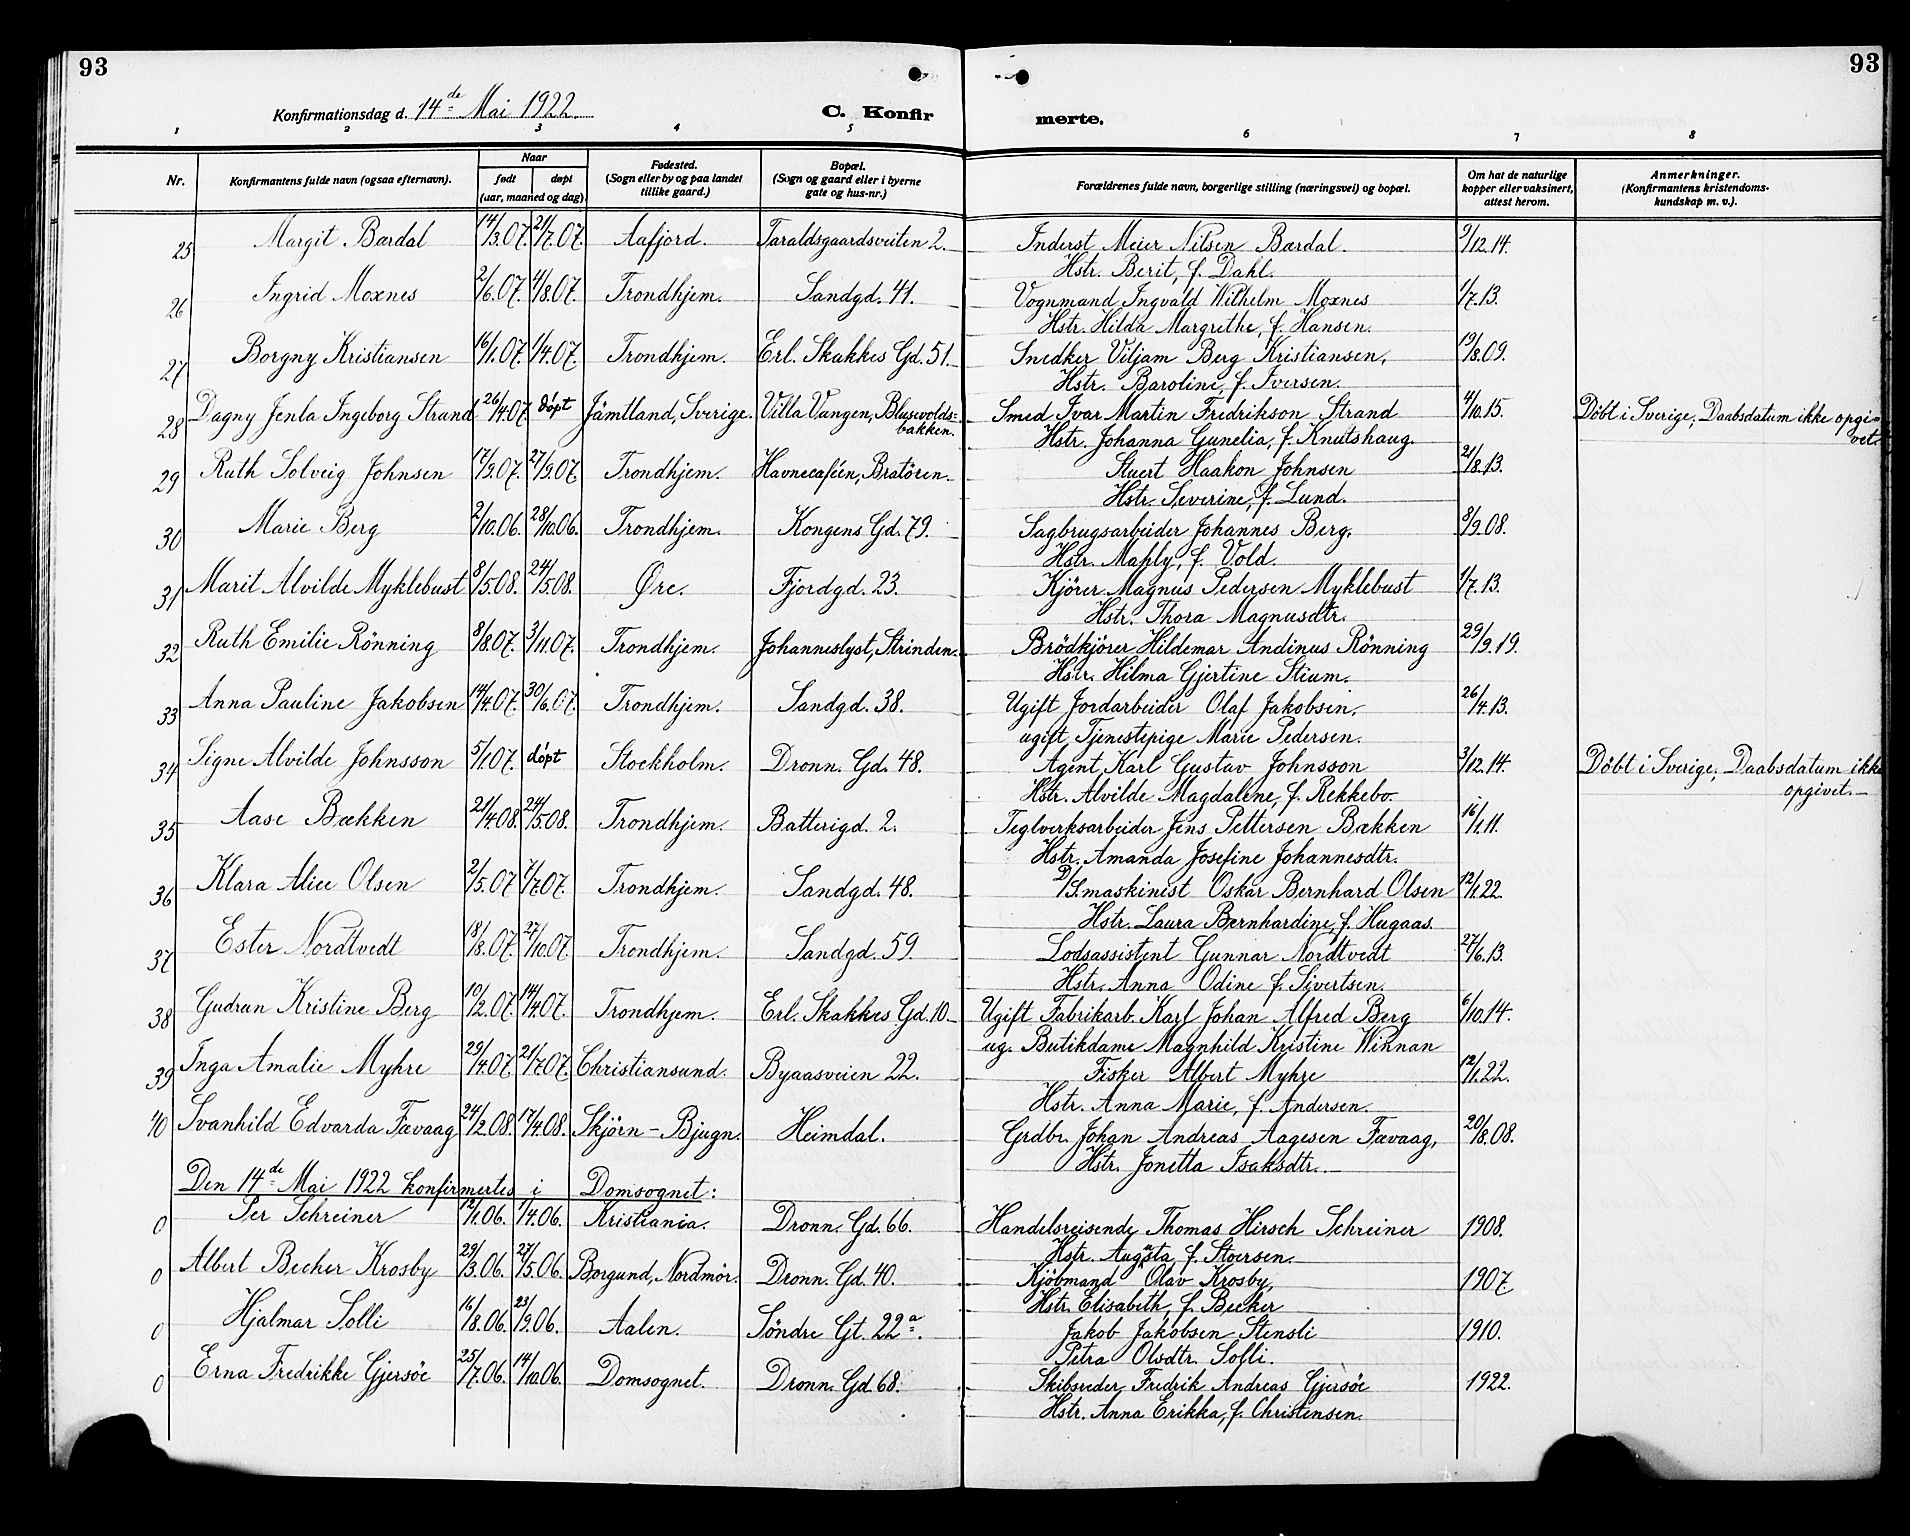 93
93
Konfirmationsdag d. 14de Mai 1922.
C. Konfirmerte.
1 2 3 4 5 6 7 8
Nr.
Konfirmantens fulde navn (ogsaa efternavn).
Naar
født
døpt
(aar, maaned og dag).
Fødested.
(Sogn eller by og paa landet
tillike gaard.)
Bopæl.
(Sogn og gaard eller i byerne
gate og hus-nr.)
Forældrenes fulde navn, borgerlige stilling (næringsvei) og bopæl.
Om hat de naturlige
kopper eller vaksinert,
attest herom.
Anmerkninger.
(Konfirmantens kristendoms-
kundskap m. v.).
25 Margit Bærdal 14/3.07. 21/7.07. Aafjord. Taraldsgaardsveiten 2. Inderst Meier Nilsen Bærdal. 9/12.14.
Hstr. Berit, f. Dahl.
26 Ingrid Moxnes 2/6.07. 4/8.07. Trondhjem. Sandgd. 41. Vognmand Ingvald Wilhelm Moxnes 1/7.13.
Hstr. Hilda Margrethe, f. Hansen.
27 Borgny Kristiansen 16/1.07. 1/4.07. Trondhjem. Erl. Skakkes Gd. 51. Snedker Viljam Berg Kristiansen, 19/8.09.
Hstr. Baroline, f. Iversen.
28 Dagny Jenla Ingeborg Strand 26/4.07. døpt Jämtland, Sverige. Villa Vangen, Blusuvolds-
bakken. Smed Ivar Martin Fredrikson Strand 4/10.15. Döbt i Sverige, Daabsdatum ikke opgi-
vet.
Hstr. Johanna Gunelia, f. Knutshaug.
29 Ruth Solveig Johnsen 17/3.07. 27/9.07. Trondhjem. Havnecaféen, Bratören. Stuert Haakon Johnsen 21/8.13.
Hstr. Severine, f. Lund.
30 Marie Berg 2/10.06. 28/10.06. Trondhjem. Kongens Gd. 79. Sagbrugsarbeider Johannes Berg, 8/9.08.
Hstr. f. Vold.
31 Marit Alvilde Myklebust 8/5.08. 24/5.08. Øre. Fjordgd. 23. Kjörer Magnus Pedersen Myklebust 1/7.13.
Hstr. Thora Magnusdtr.
32 Ruth Emilie Rönning 8/8.07. 3/11.07. Trondhjem. Johanneslyst, Strinden. Brödkjörer Hildemar Andinus Rönning 29/9.19.
Hstr. Hilma Gjertine Stium.
33 Anna Pauline Jakobsen 14/4.07. 30/6.07. Trondhjem. Sandgd. 38. Ugift Jordarbeider Olaf Jakobsen, 26/4.13.
ugift Tjenestepige Marie Pedersen.
34 Signe Alvilde Johnsson 5/1.07. døpt Stockholm. Dronn. Gd. 48. Agent Karl Gustav Johnsson 3/12.14. Döbt i Sverige, Daabsdatum ikke
opgivet.—
Hstr. Alvilde Magdalene, f. Rekkebo.
35 Aase Bækken 21/4.08. 24/5.08. Trondhjem. Batterigd. 2. Teglverksarbeider Jens Pettersen Bækken 16/1.11.
Hstr. Amanda Josefine Johannesdtr.
36 Klara Alice Olsen 2/5.07 7/7.07. Trondhjem. Sandgd. 48. D/S.maskinist Oskar Bernhard Olsen 12/1.22.
Hstr. Laura Bernhardine, f. Hugaas.
37 Ester Nordtvedt 18/8.07. 27/10.07. Trondhjem. Sandgd. 59. Lodsassistent Gunnar Nordtvedt 27/6.13.
Hstr. Anna Odine f. Sivertsen.
38 Gudrun Kristine Berg 10/2.07. 14/4.07. Trondhjem. Erl. Skakkes Gd. 10. Ugift Fabrikarb. Karl Johan Alfred Berg 6/10.14.
ug. Butikdame Magnhild Kristine Winnan
39 Inga Amalie Myhre 29/4.07. 21/7.07. Christiansund. Byaasveien 22. Fisker Albert Myhre 12/1.22.
Hstr. Anna Marie, f. Andersen.
40 Svanhild Edvarda Fævaag 24/2.08. 17/4.08. Skjörn-Bjugn. Heimdal. Grdbr. Johan Andreas Aagesen Fævaag, 20/8.08.
Hstr. Jonetta Isaksdtr.
Den 14de Mai 1922 konfirmertes i Domsognet:
0 Per Schreiner 12/1.06. 1/4.06. Kristiania. Dronn. Gd. 66. Handelsreisende Thomas Hirsch Schreiner 1908.
Hstr. Augusta, f. Stoersen.
0 Albert Becher Krosby 29/3.06. 27/5.06. Borgund, Nordmör. Dronn. Gd. 40. Kjöbmand Olav Krosby, 1907
Hstr. Elisabeth, f. Becker
0 Hjalmar Solli 16/8.06. 23/9.06. Aalen. Söndre Gt. 22a. Jakob Jakobsen Stensli 1910.
Petra Olsdtr. Solli.
0 Erna Fredrikke Gjersöe 25/7.06. 14/10.06. Domsognet. Dronn. Gd 68. Skibsreder Fredrik Andreas Gjersöe 1922.
Hstr. Anna Erikka, f. Christensen.